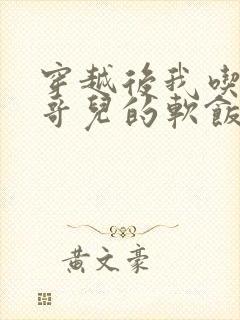 穿越後我喫
哥兒的軟飯
黃文豪